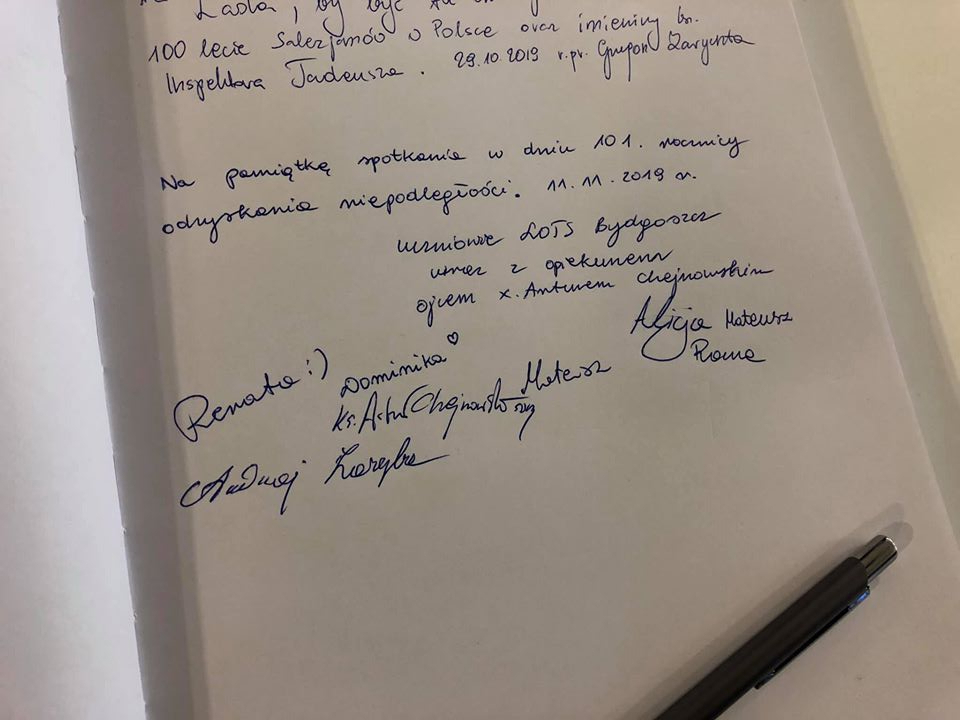 Łaska, by być
100 lecie Salezjanów w Polsce oraz imieniny ks.
Inspektora Tadeusza. 29.10.2019 r. pr.
Na pamiątkę spotkania w dniu 101. rocznicy
odzyskania niepodległości. 11.11.2019 r.
uczniowie LOTS Bydgoszcz
wraz z opiekunem
ojcem x. Arturem Chejnowskim
Alicja Mateusz
Roma
Renata :) Dominika ♡
Ks. Artur Chojnowski Mateusz
Andrzej Zaręba